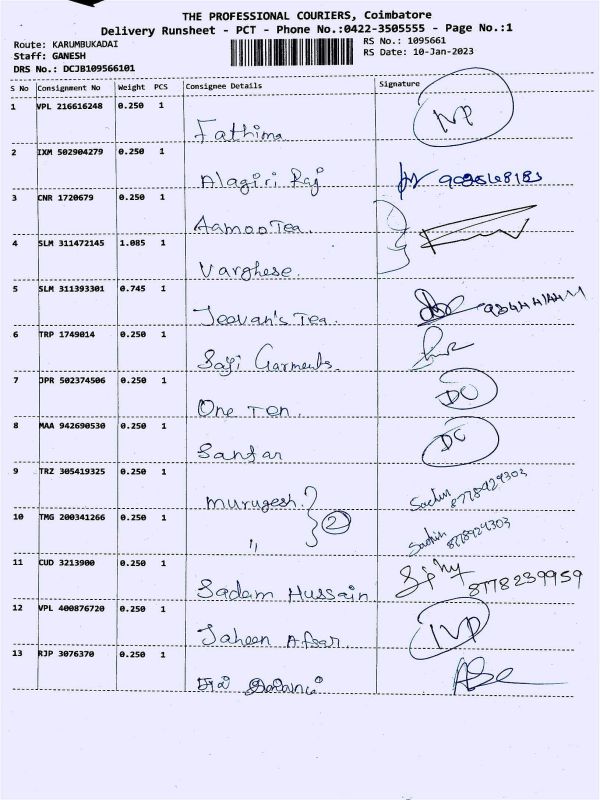 THE PROFESSIONAL COURIERS, Coimbatore
Delivery Runsheet - PCT - Phone No.:0422-3505555 - Page No.:1
Route: KARUMBUKADAI RS No.: 1095661
Staff: GANESH RS Date: 10-Jan-2023
DRS No.: DCJB109566101
S No Consignment No Weight PCS Consignee Details Signature
1 VPL 216616248 0.250 1
Fathima
2 IXM 502904279 0.250 1
Alagiri Raj
3 CNR 1720679 0.250 1
Aamoo Tea.
4 SLM 311472145 1.085 1
Varghese.
5 SLM 311393301 0.745 1
Jeevan's Tea.
6 TRP 1749014 0.250 1
Saji Garments.
7 JPR 502374506 0.250 1
One Ten. DC
8 MAA 942690530 0.250 1
DC
9 TRZ 305419325 0.250 1
murugesh. Sachin
8778929303
10 TMG 200341266 0.250 1 2
" Sachin
8778929303
11 CUD 3213900 0.250 1
Sadam Hussain 8778239959
12 VPL 400876720 0.250 1
Jaheen Afsar. IVP
13 RJP 3076370 0.250 1